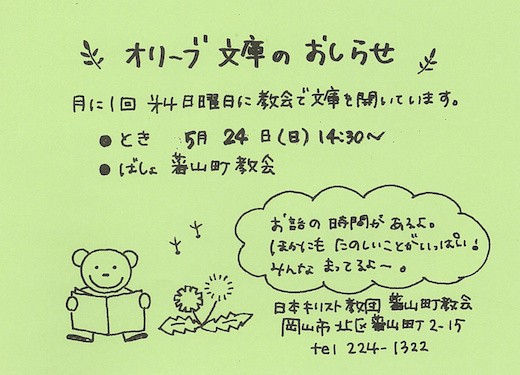 オリーブ文庫のおしらせ
月に1回 第4日曜日に教会で文庫を開いています。
● とき 5月 24 日(日) 14:30〜
● ばしょ 蕃山町教会
お話の時間があるよ。
ほかにも たのしいことがいっぱい!
みんな まってるよ〜。
日本キリスト教団 蕃山町教会
岡山市北区蕃山町2-15
tel 224-1322